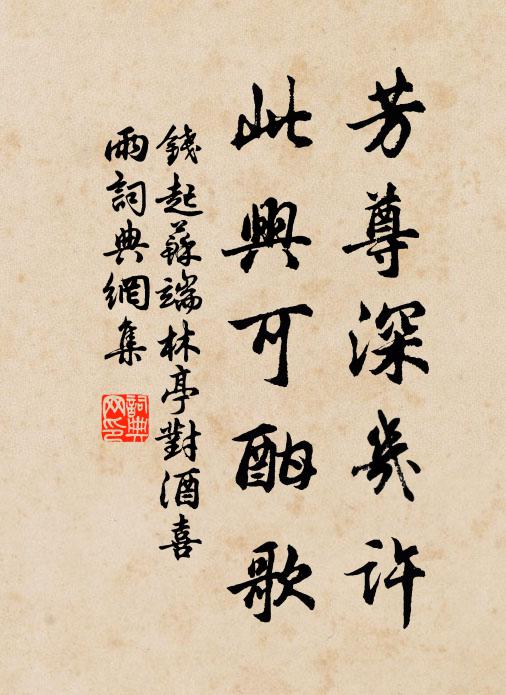 芳尊深幾許
此興可酣歌
錢起蘇端林亭對酒喜
雨詞典網集
詞典
网印